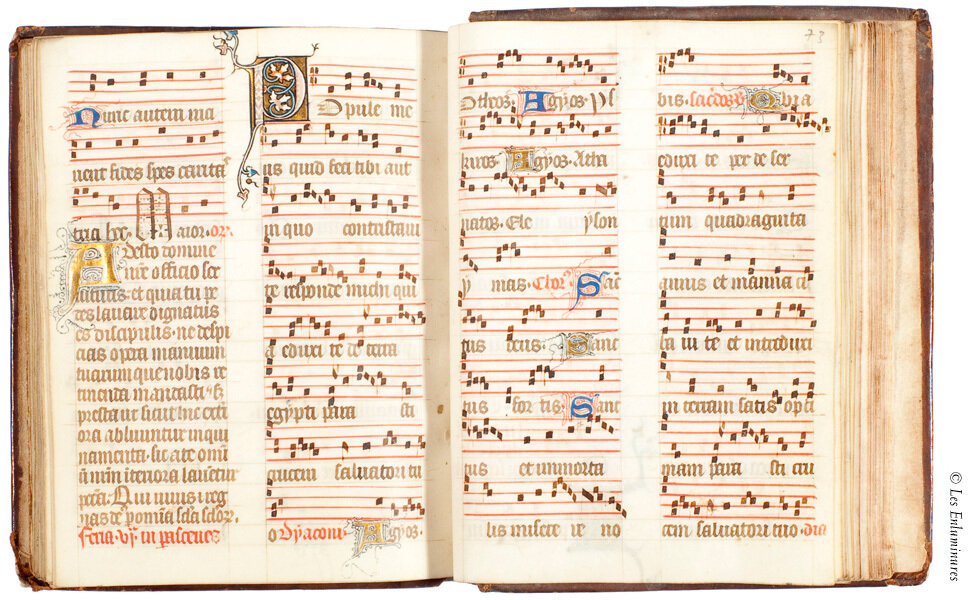 Nunc autem ma
nent fides spes carita
tria hec. Maior. or.
Adesto domine
officio ser
uitutis. et quia tu pe
des lauare dignatus
es discipulis. ne despi
cias opera manuum
tuarum que nobis re
tinenda mandasti. S;
presta ut sicut hic exti
ora abluuntur inqui
namenta. sic a te omi
interiora lauentur
peta. Qui uiuis et reg
nas
feria. vj. in
Popule me
us quid feci tibi aut
in quo contristaui
te responde michi qui
a eduxi te de terra
egypti para sti
crucem saluatori tu
o Dyaconi. Agyos.
Otheos. Agyos. ys
kiros. Agyos. Atha
natos. Ele yson
y mas. Chor. Sanc
tus deus. Sanc
tus for tis. Sanc
tus et immorta
lis misere re no
73
bis. sacerdos. Quia
eduxi te per de ser
tum quadraginta
annis et manna ci
ba ui te et introduxi
in terram satis opti
mam para sti cru
cem saluatori tuo. dia
© Les Enluminures